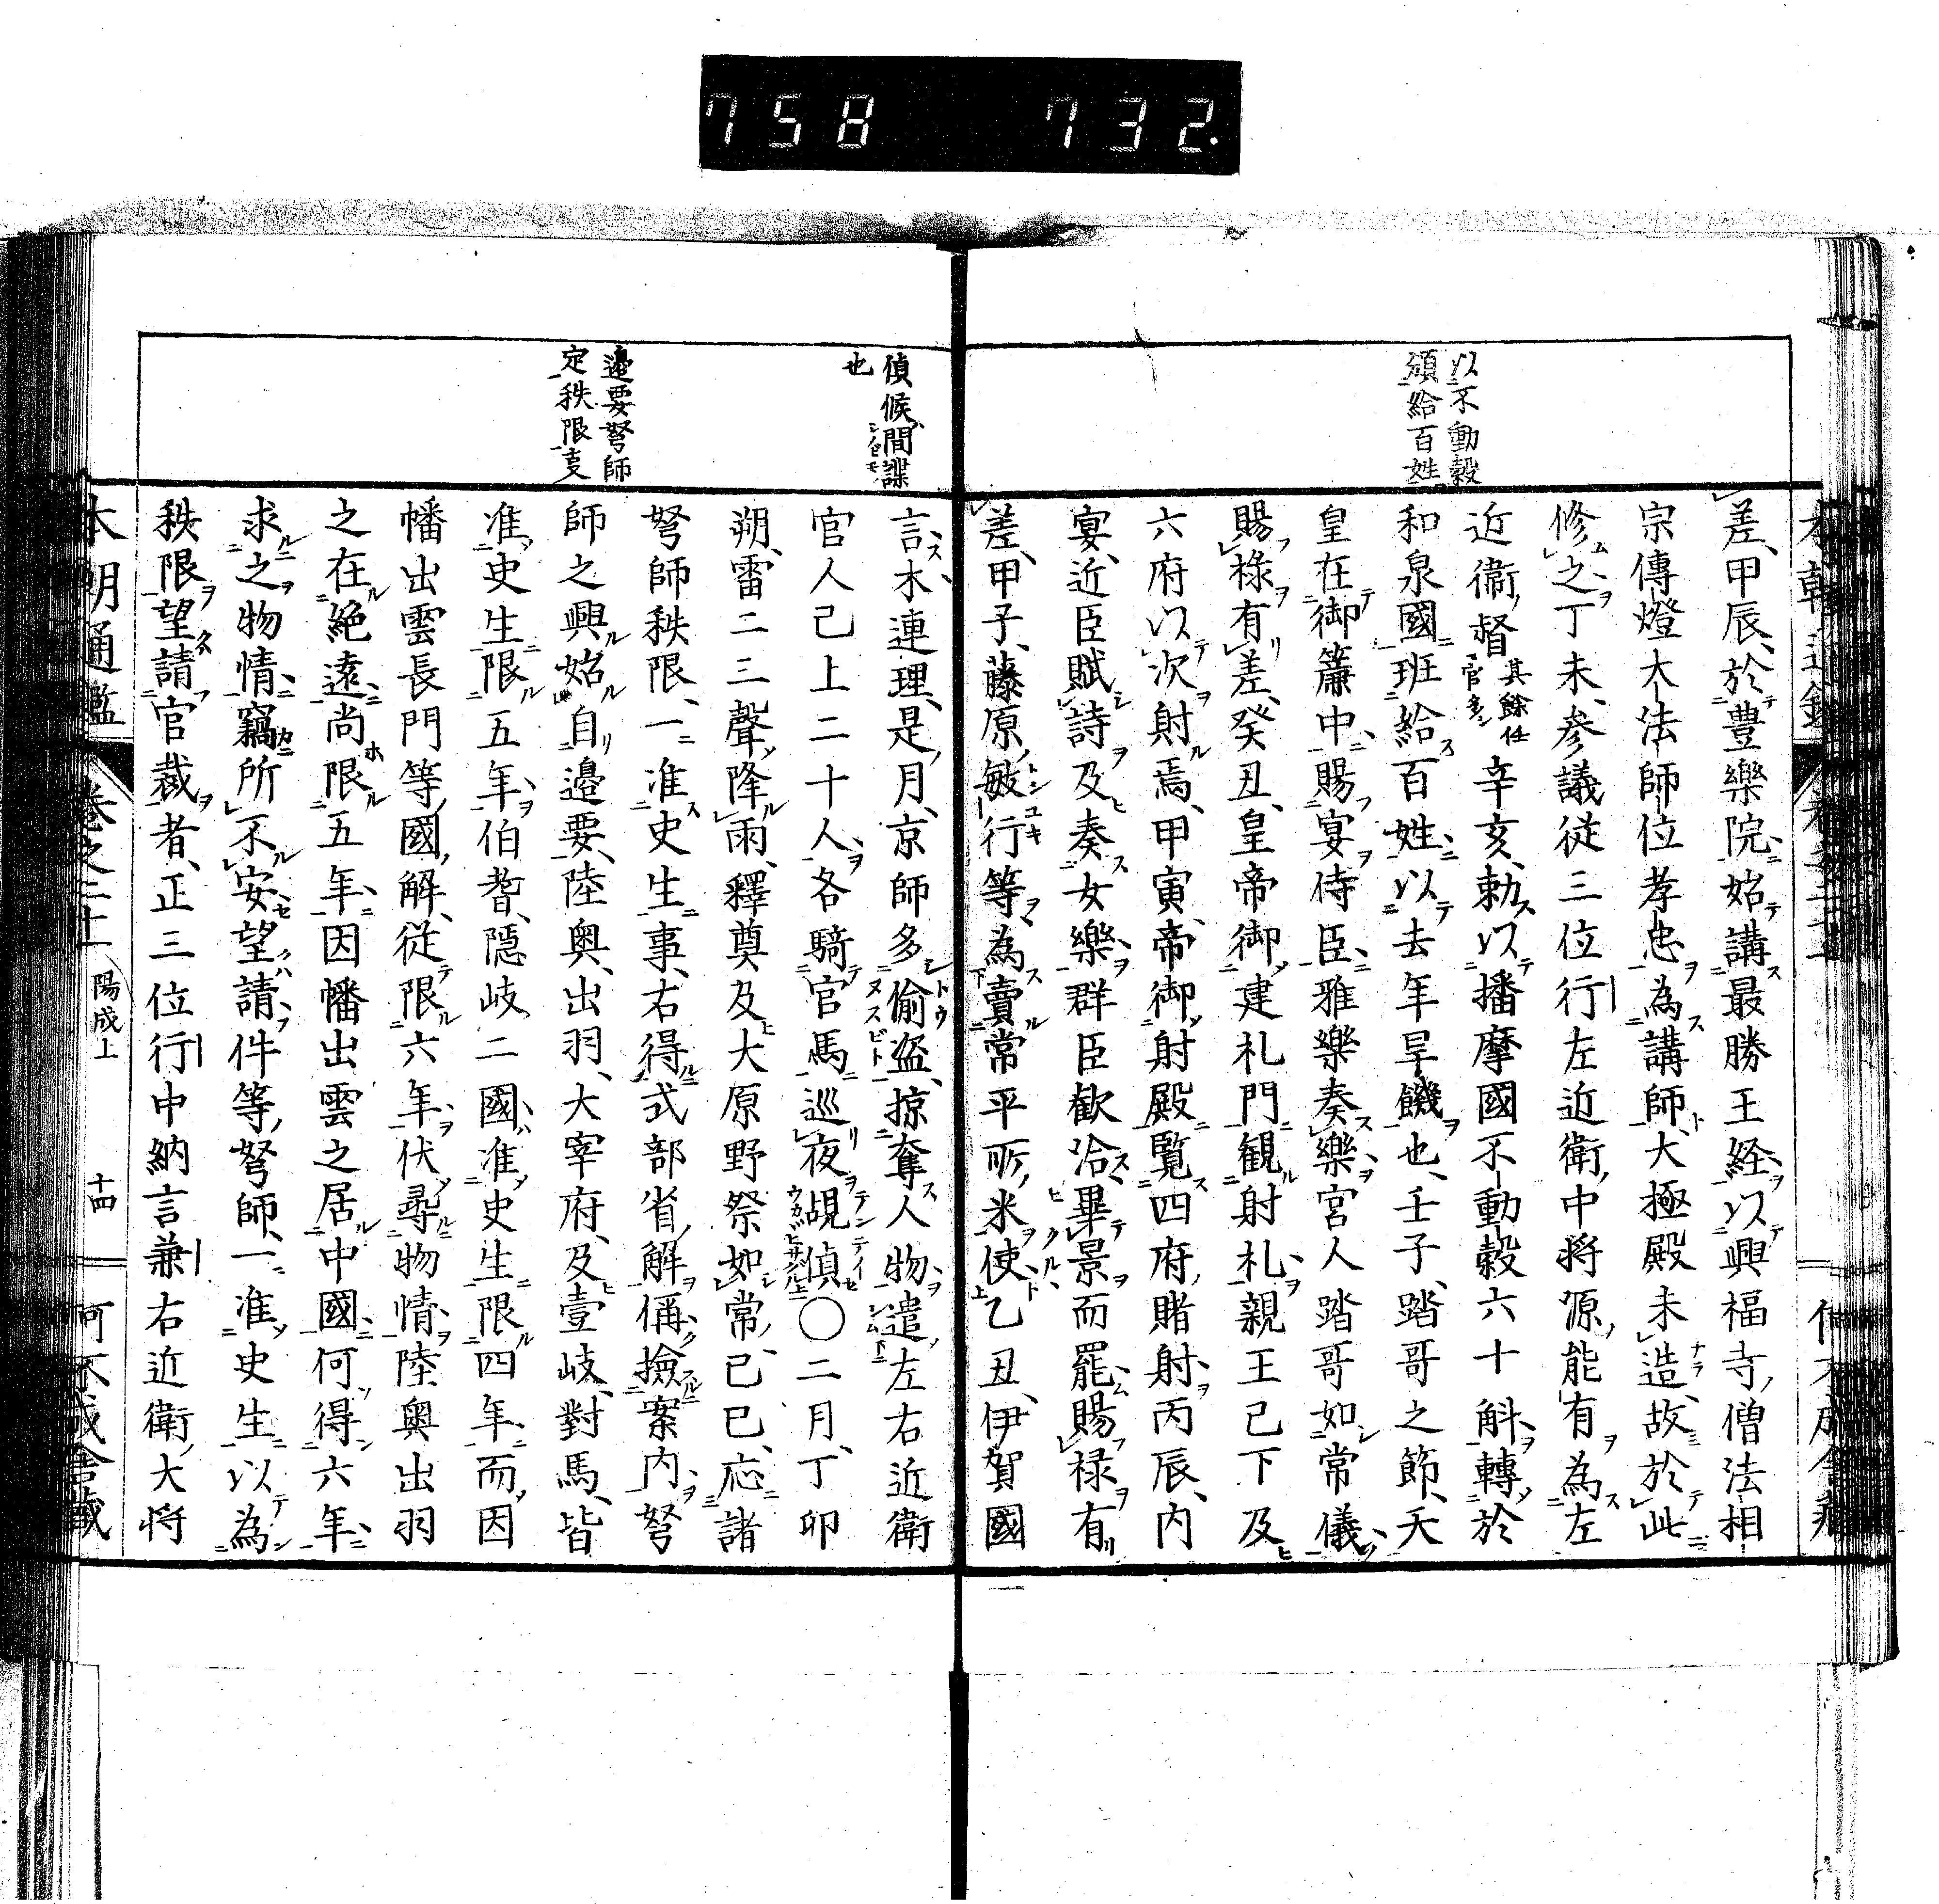 758 732.
以不動穀
頒給百姓
差甲辰於豊樂院始講最勝王経以興福寺僧法相
宗傳燈大法師位孝忠為講師大極殿未造故於此
修之丁未参議従三位行左近衛中将源能有為左
近衞督其餘任官多シ辛亥勅以播摩國不動穀六十斛轉於
和泉國班給百姓以去年旱饑也壬子踏哥之節天
皇在御簾中賜宴侍臣雅樂奏樂宮人踏哥如常儀
賜祿有差癸丑皇帝御建礼門観射札親王己下及
六府以次射焉甲寅帝御射殿覧四府賭射丙辰内
宴近臣賦詩及奏女樂群臣歓洽畢景而罷賜禄有
差甲子藤原敏行等為賣常平所米使乙丑伊賀國
偵候間諜
也
邉要弩師
定秩限叓
言木連理是月京師多偷盗掠奪人物遣左右近衛
官人己上二十人各騎官馬巡夜覘偵〇二月丁卯
朔雷二三聲降雨釋奠及大原野祭如常已巳応諸
弩師秩限一准史生事右得式部省解偁撿案内弩
師之興始自邉要陸奥出羽大宰府及壹岐對馬皆
准史生限五年伯耆隠岐二國准史生限四年而因
幡出雲長門等國解従限六年伏尋物情陸奥出羽
之在絶遠尚限五年因幡出雲之居中國何得六年
求之物情竊所不安望請件等弩師一准史生以為
秩限望請官裁者正三位行中納言兼右近衛大将
本朝通鑑 卷之二十 陽成上 十四